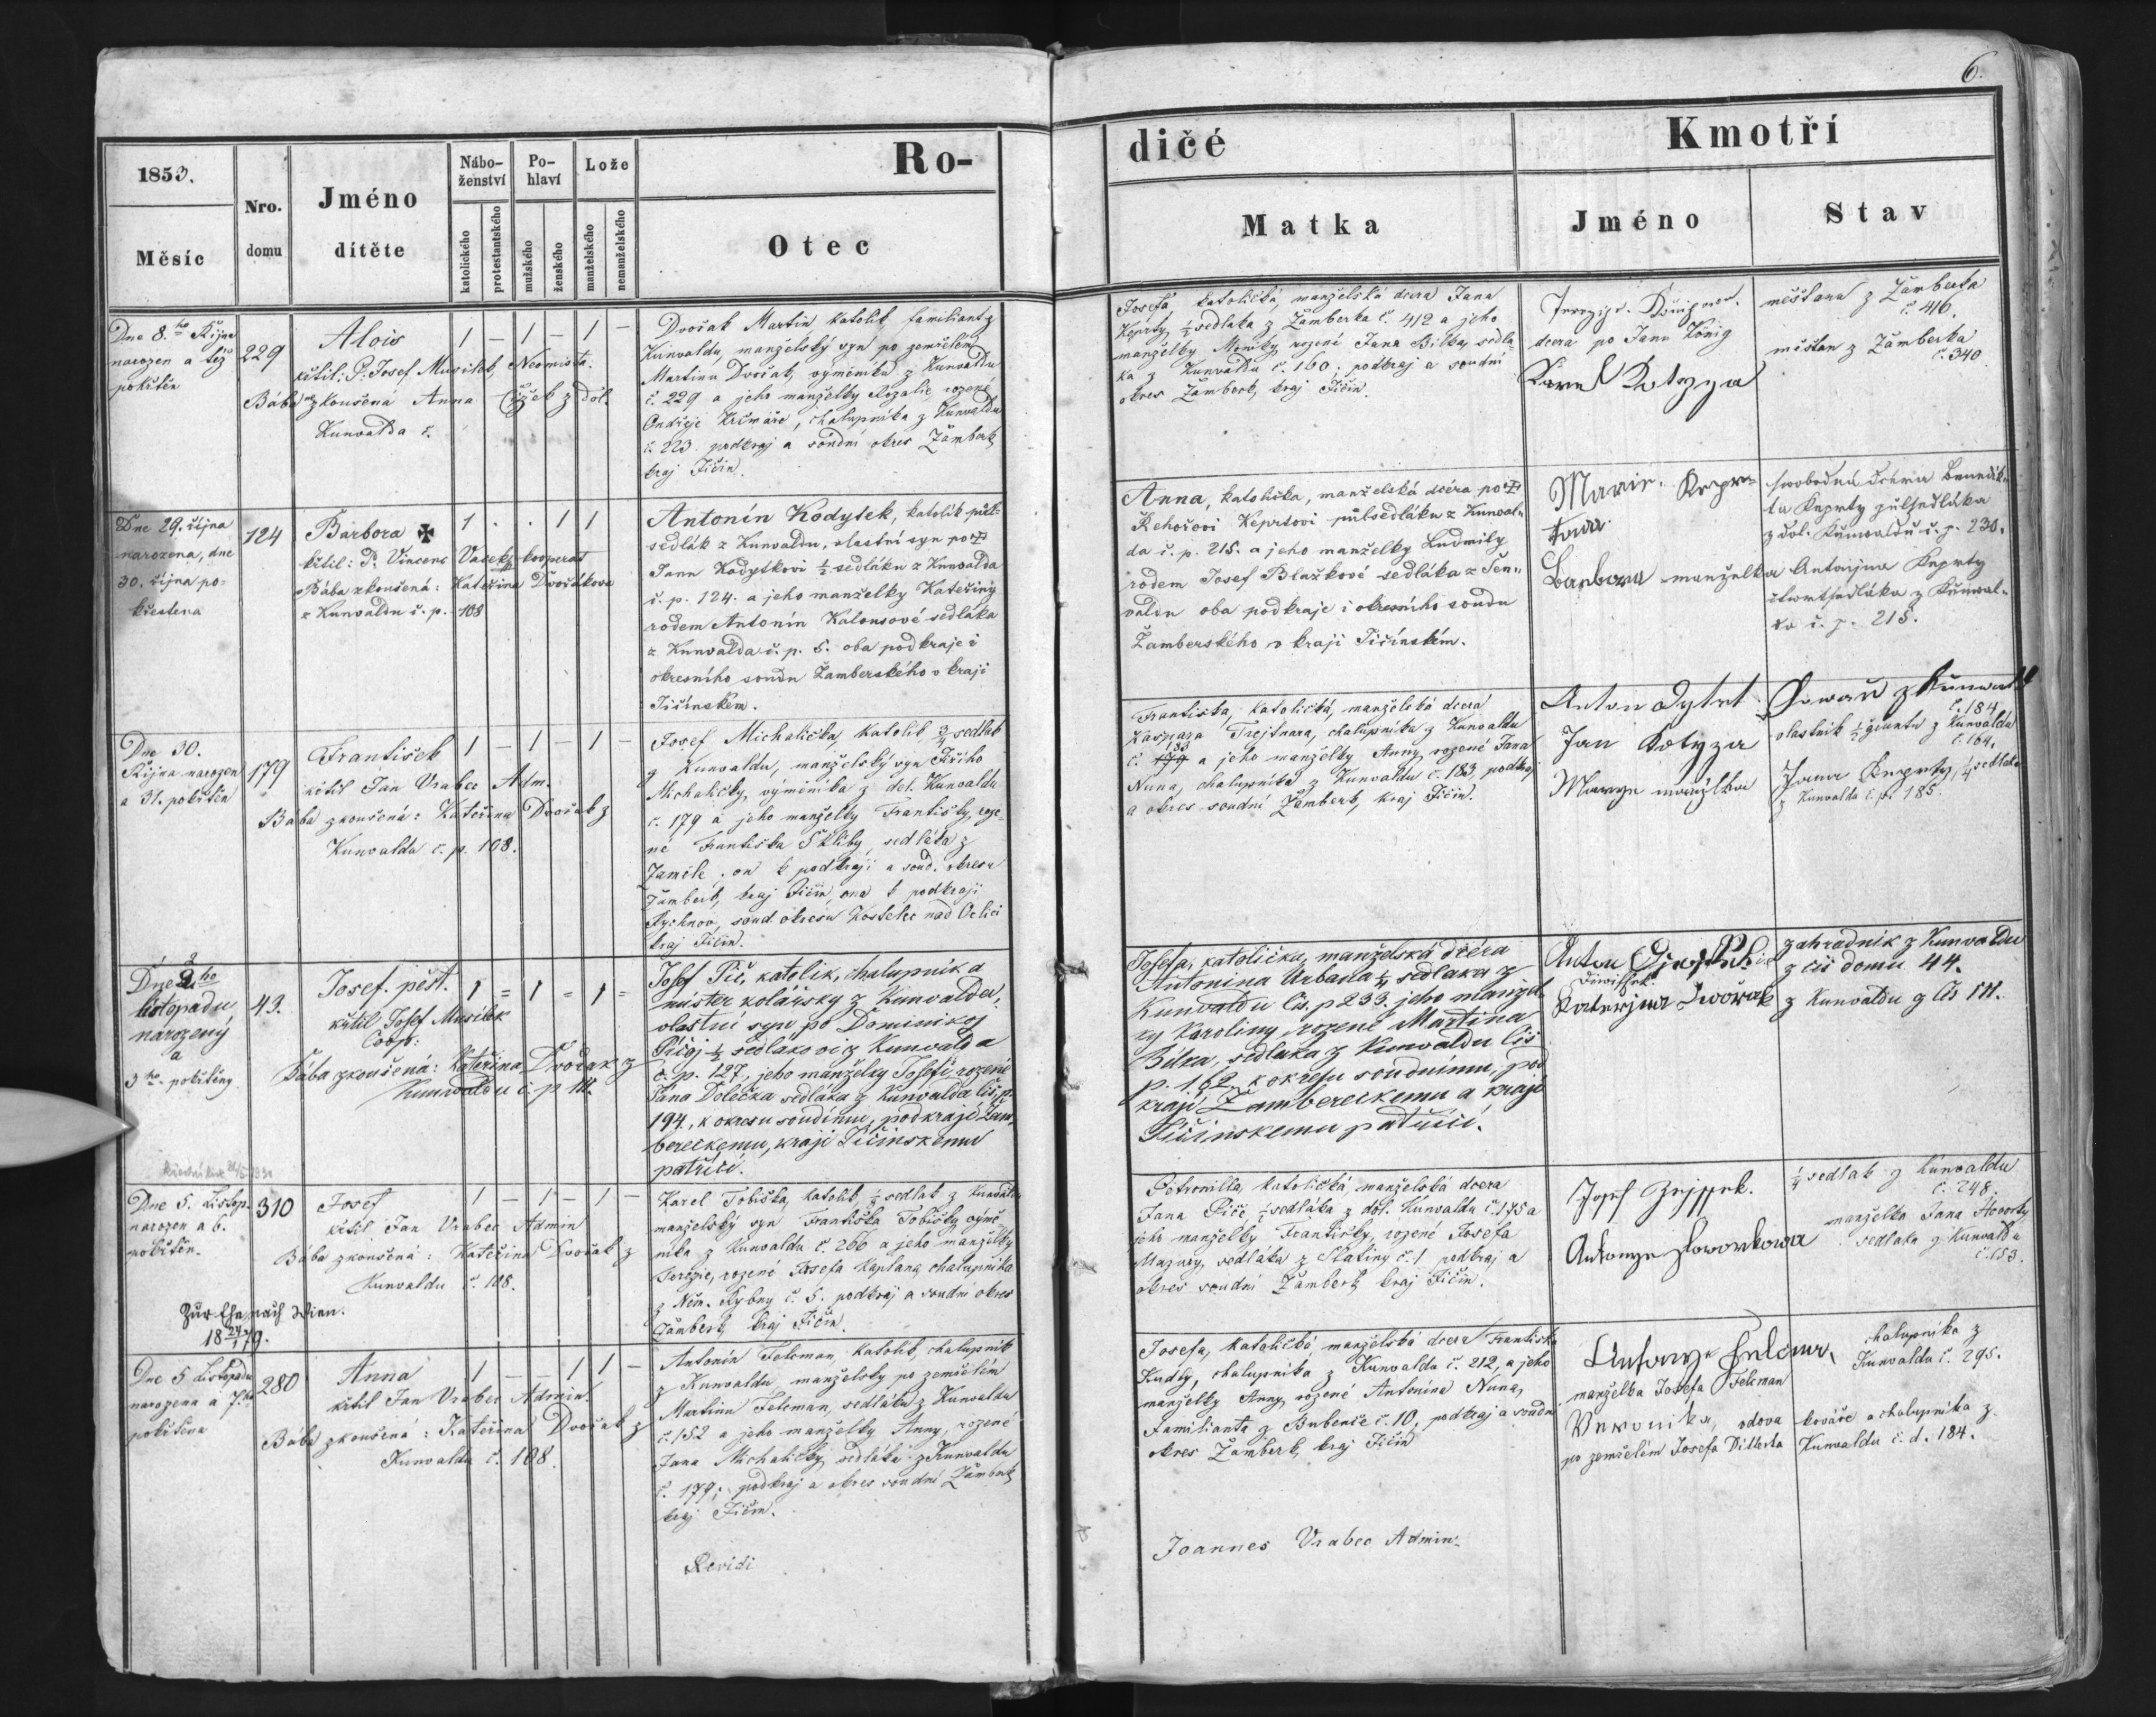 6.
1853.
Měsíc
Nro.
domu
Jméno
dítěte
Nábo-
ženství
katolického
protestantského
Po-
hlaví
mužského
ženského
Lože
manželského
nemanželského
Ro-
Otec
dičé
Matka
Kmotří
Jméno
Stav
Dne 8. ho Října
narozen a též
pokřtěn
229
Alois
křtil: P. Josef Musílek, Neomista.
Bába zkoušená Anna Čížek z dol.
Kunvalda č.
1 – 1 – 1 –
Dvořak Martin, katolík, familiant z
Kunvaldu, manželský syn po zemřelém
Martinu Dvořak, výměníku z Kunvaldu
č. 229 a jeho manželky Rozalie rozené
Ondřeje Krčmáře, chalupníka z Kunvaldu
č. 223 podkraj a soudní okres Žamberk
kraj Jičín.
Josefa, katolička, manželská dcera Jana
Keprty, ½ sedláka z Žamberka č. 412 a jeho
manželky rozené Jana Bílka, sedlá-
ka z Kunvaldu č. 160; podkraj a soudní
okres Žamberk, kraj Jičín.
dcera po Janu König
Karel Kotyza
měšťana z Žamberka
č. 416.
měšťan z Žamberka
č. 340
Dne 29. října
narozena, dne
30. října po-
křestena
124
Barbora ✠
křtil: P. Vincenc Vacek, kooperat
Bába zkoušená: Kateřina Dvořákova
z Kunvaldu č. p. 108
1 . . 1 1
Antonín Kodytek, katolík půl-
sedlák z Kunvaldu, vlastní syn po †
Janu Kodytkovi ½ sedláku z Kunvalda
č. p. 124. a jeho manželky Kateřiny
rodem Antonín Kalousové sedláka
z Kunvalda č. p. 5. oba podkraje i
okresního soudu Žamberského v kraji
Jičínském.
Anna, katolička, manželská dcéra po †
Řehořovi Keprtovi půlsedláku z Kunval-
da č. p. 215. a jeho manželky Ludmily
rodem Josef Blažkové sedláka z Šen-
valdu oba podkraje i okresního soudu
Žamberského v kraji Jičínském.
Marie Kepr-
tova
Barbora manželka
svobodná dcera Benedik-
ta Keprty půlsedláka
z dol. Kunwaldu č. p. 230.
Antonjna Keprty
čtwrtsedláka z Kunwal-
da č. p. 215.
Dne 30.
Října narozen
a 31. pokřtěn
179
František
křtil Jan Vrabec Adm.
Bába zkoušená: Kateřina Dvořak z
Kunvaldu č. p. 108.
1 – 1 – 1 –
Josef Michalička, katolík ¾ sedlák
z Kunvaldu, manželský syn Jiřího
Michaličky, výměníka z dol. Kunvaldu
č. 179 a jeho manželky Františky, roze-
né Františka Škliby, sedláka z
Jamile. on k podkraji a soud. okresu
Žamberk, kraj Jičín, ona k podkraji
Rychnov, soud. okresu Kostelec nad Orlici
kraj Jičín.
Františka, katolička, manželská dcera
Kaspara Trejtnara, chalupníka z Kunvaldu
133
č. 179 a jeho manželky Anny, rozené Jana
Nuna, chalupníka z Kunvaldu č. 183, podkraj
a okres soudní Žamberk, kraj Jičín.
Anton Dytrt
Jan Kotyza
Marye manželka
Kowař z Kunwaldu
č. 184
vlastník ½ gruntu z Kunvaldu
č. 164.
Jana Keprty, ¼ sedláka
z Kunvalda č. p. 185.
2
Dne 2. ho
listopadu,
narozený
a
3 ho pokřtěný
43.
Josef. pěst.
křtil Josef Musílek
Coop:
Bába zkoušená: Kateřina Dvořak z
Kunwaldu č. p 111.
1 = 1 = 1 =
Josef Píč, katolik, chalupník a
mister kolářsky z Kunvalda,
vlastní syn po Dominikoj
Píčoj ½ sedlákovi z Kunvalda
č. p. 127, jeho manželky Josefi rozené
Jána Dolečka sedláka z Kunvalda čis. p.
194, k okresu soudímu, podkrají Žam-
bereckemu, kraji Jičinskemu
patřící.
Josefa, katolička, manželská dcéra
Antonina Urbana ¼ sedlaka z
Kunvaldu čis. p 233. jeho manžel-
ky Karoliny rozené Martina
Bílka, sedlaka z Kunvaldu čis
p. 162 k okresu soudnimu, pod
kraji Žambereckemu a kraje
Jičinskemu patřící.
Anton
Diwissek
Kateřjna Dwořak
zahradník z Kunvaldu
z čis domu 44.
z Kunvaldu z čis 111.
Dne 5. Listop.
narozen a 6.
pokřtěn.
310
Josef
křtil Jan Vrabec Admin
Bába zkoušená: Kateřina Dvořak z
Kunvaldu č. 108.
Zur Ehe nach Wien.
18 24/1 79.
1 – 1 – 1 –
Karel Tobiška, katolík, ¼ sedlák z Kunvaldu
manželský syn Františka Tobišky, výmě-
níka z Kunvaldu č. 266 a jeho manželky
Terezie, rozené Josefa Kaplana, chalupníka
z Něm. Rybny č. 5. podkraj a soudní okres
Žamberk, kraj Jičín.
Petronilla, katolička, manželská dcera
Jana Píče ½ sedláka z dol. Kunvaldu č. 175 a
jeho manželky Františky, rozené Josefa
Mazury, sedláka z Slatiny č. 1 podkraj a
okres soudní Žamberk kraj Jičín.
Josef
¼ sedlák z Kunvaldu
č. 248.
manželka Jana Hovorky
sedláka z Kunvaldu
č. 153.
Dne 5 Listopadu
narozena a 7. ho
pokřtěna
280
Anna
křtil Jan Vrabec Admin.
Bába zkoušená: Kateřina Dvořak z
Kunvaldu č. 108.
1 – 1 1 –
Antonín Felcman, katolík, chalupník
z Kunvaldu manželský po zemřelém
Martinu Felcman, sedláku z Kunvaldu
č. 152 a jeho manželky Anny, rozené
Jana Michaličky, sedláka z Kunvaldu
č. 179; podkraj a okres soudní Žamberk
kraj Jičín.
Josefa, katolička, manželská dcera Františka
Kudly, chalupníka z Kunvaldu č. 212, a jeho
manželky Anny, rozené Antonína Nuna,
familianta z Bubenče č. 10, podkraj a soudní
okres Žamberk, kraj Jičín
manželka Josefa Felcman
Veronika, vdova
po zemřelém Josefa Ditterta
chalupníka z
Kunvaldu č. 295.
kováře a chalupníka z
Kunvaldu č. d. 184.
Revidi
Joannes Vrabec Admin.